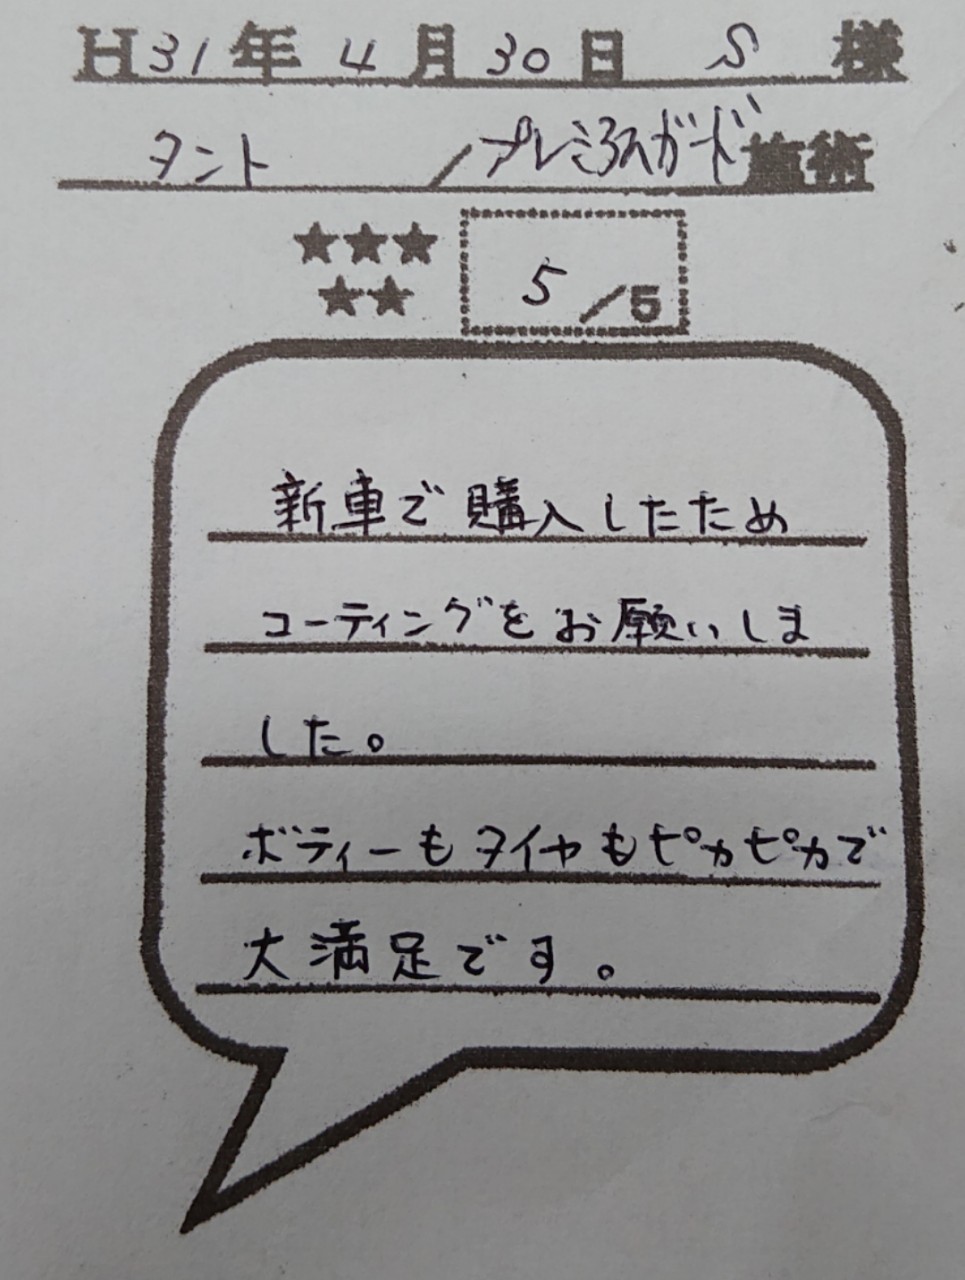 H31年4月30日 S 様
タント / プレミアムガード施術
★★★
★★
5/5
新車で購入したため
コーティングをお願いしま
した。
ボディーもタイヤもピカピカで
大満足です。